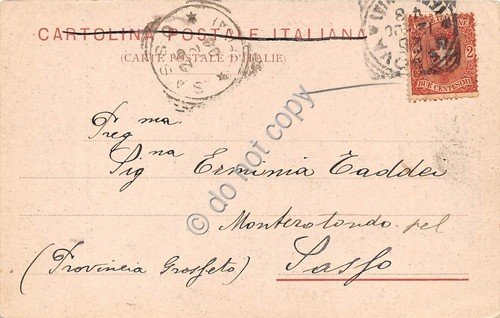 CARTOLINA POSTALE ITALIANA
(CARTE POSTALE D'ITALIE)
DUE CENTESIMI
Preg ma
Sig na Erminia Taddei
Monterotondo pel
(Provincia Grosseto) Sasso
© do not copy